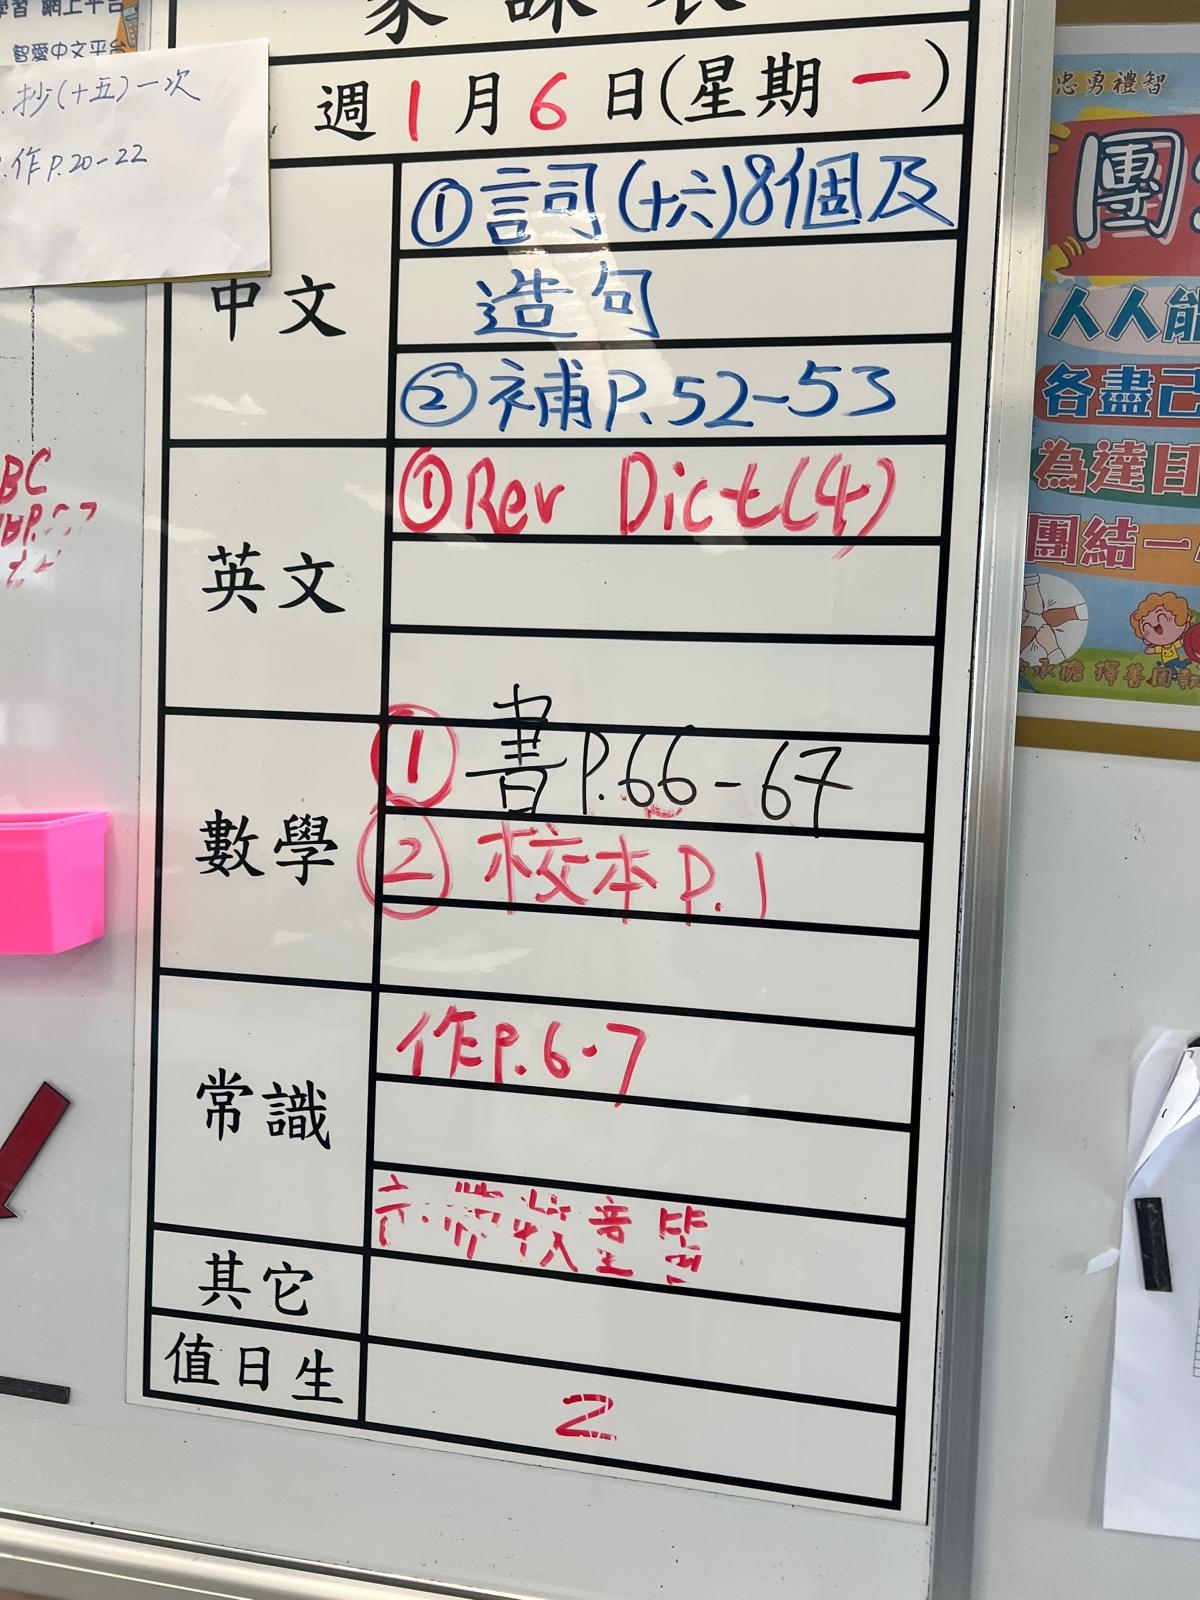 學習 網上平台
智愛中文平台
抄(十五)一次
作P.20-22
家課表
週1月6日(星期一)
中文
①詞(十六)8個及
造句
②補P.52-53
英文
①Rev Dict(4)
數學
①書P.66-67
②校本P.1
常識
作P.6-7
其它
值日生
2
BC
忠勇禮智
團
人人能
各盡己
為達目
團結一
承擔 擇善固執